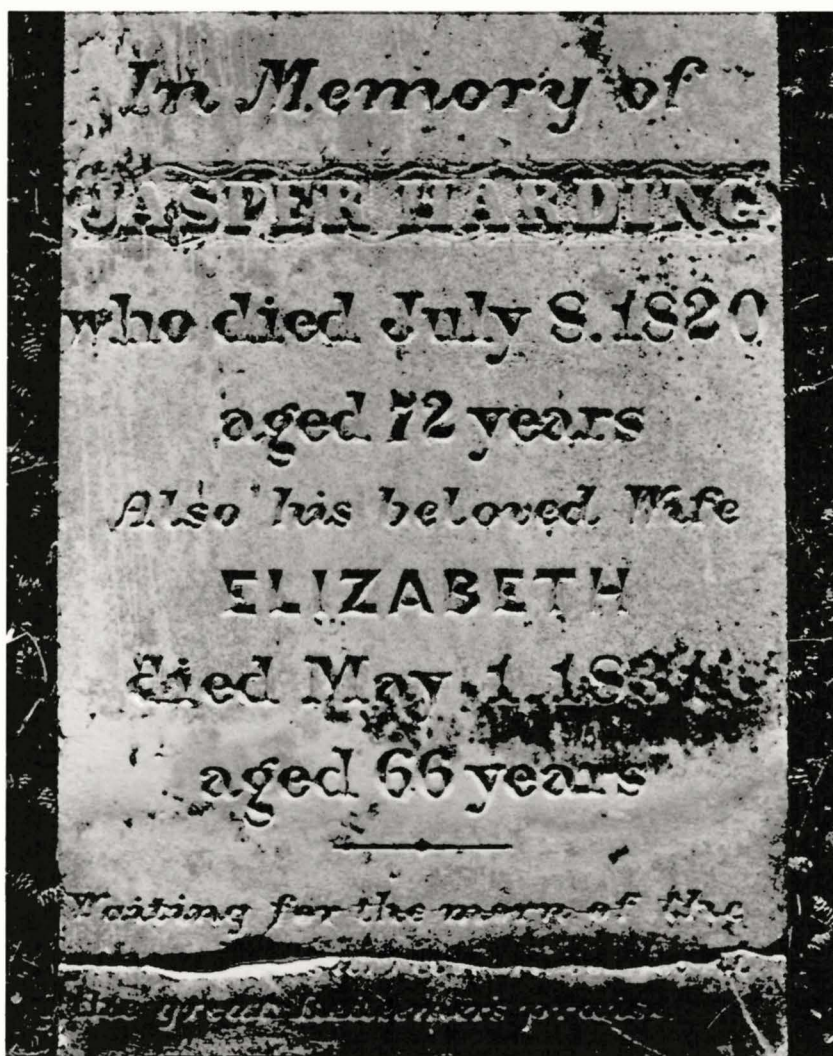 In Memory of
JASPER HARDING
who died July 8. 1820
aged 72 years
Also his beloved Wife
ELIZABETH
died May 1. 1831
aged 66 years
Waiting for the morn of the
the great